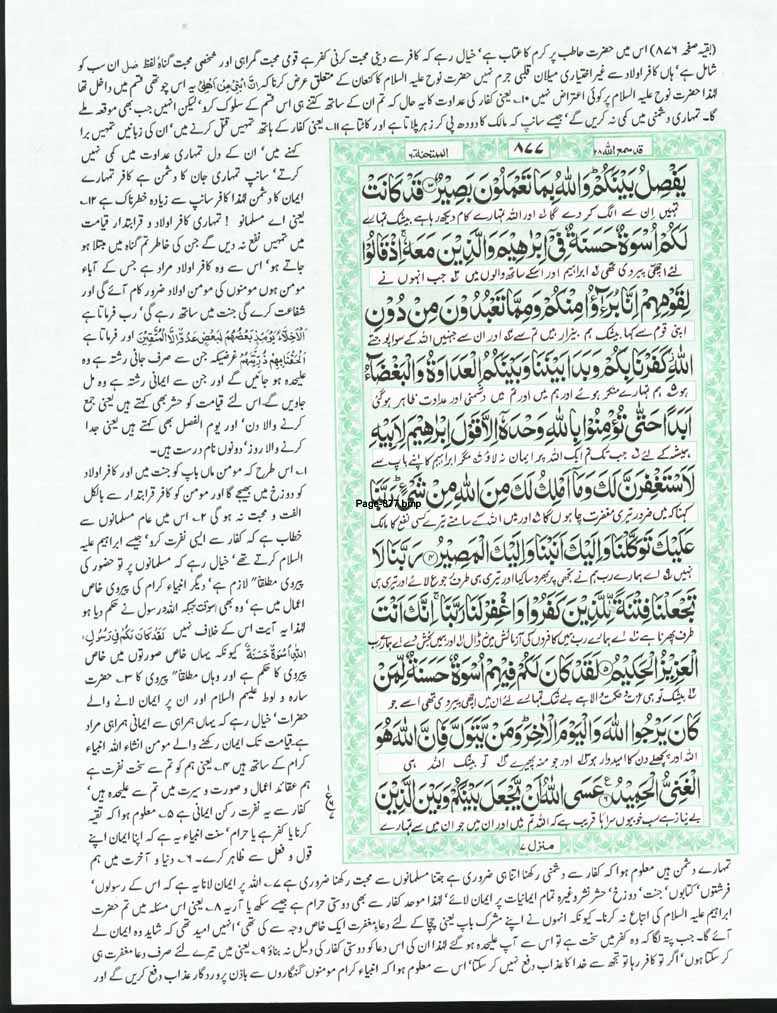 (بقیہ صفحہ ۸۷۶) اس میں حضرت حاطب پر کرم کا عتاب ہے، خیال رہے کہ کافر سے دینی محبت کرنی کفر ہے قومی محبت گمراہی اور شخصی محبت گناہ لفظ ضل ان سب کو
شامل ہے، ہاں کافر اولاد سے غیر اختیاری میلان قلبی جرم نہیں حضرت نوح علیہ السلام کا کنعان کے متعلق عرض کرنا کہ اِنَّ ابْنِیْ مِنْ اَهْلِیْ یہ اس چوتھی قسم میں داخل تھا
لہٰذا حضرت نوح علیہ السلام پر کوئی اعتراض نہیں ۱۰۔ یعنی کفار کی عداوت کا یہ حال کہ تم ان کے ساتھ کتنے ہی اس قسم کے سلوک کرو، لیکن انہیں جب بھی موقعہ ملے
گا۔ تمہاری دشمنی میں کمی نہ کریں گے، جیسے سانپ کہ مالک کا دودھ پی کر زہر پلاتا ہے اور کاٹتا ہے ۱۱۔ یعنی کفار کے ہاتھ تمہیں قتل کرنے میں، ان کی زبانیں تمہیں برا
کہنے میں، ان کے دل تمہاری عداوت میں کمی نہیں
کرتے، سانپ تمہاری جان کا دشمن ہے کافر تمہارے
ایمان کا دشمن لہٰذا کافر سانپ سے زیادہ خطرناک ہے ۱۲۔
یعنی اے مسلمانو ! تمہاری کافر اولاد و قرابتدار قیامت
میں تمہیں نفع نہ دیں گے جن کی خاطر تم گناہ میں مبتلا ہو
جاتے ہو، اس سے وہ کافر اولاد مراد ہے جس کے آباء
مومن ہوں مومنوں کی مومن اولاد ضرور کام آئے گی اور
شفاعت کرے گی جنت میں ساتھ رہے گی، رب فرماتا ہے
اَلْاَخِلَّآءُ یَوْمَئِذٍۭ بَعْضُهُمْ لِبَعْضٍ عَدُوٌّ اِلَّا الْمُتَّقِیْنَ اور فرماتا ہے
اَلْحَقْنَا بِهِمْ ذُرِّیَّتَهُمْ غرضیکہ جن سے صرف جانی رشتہ ہے وہ
علیحدہ ہو جائیں گے اور جن سے ایمانی رشتہ ہے وہ مل
جاویں گے۔ اس لئے قیامت کو حشر بھی کہتے ہیں یعنی جمع
کرنے والا دن، اور یوم الفصل بھی کہتے ہیں یعنی جدا
کرنے والا روز، دونوں نام درست ہیں۔
۱۔ اس طرح کہ مومن ماں باپ کو جنت میں اور کافر اولاد
کو دوزخ میں بھیجے گا اور مومن کو کافر قرابتدار سے بالکل
الفت و محبت نہ ہو گی ۲۔ اس میں عام مسلمانوں سے
خطاب ہے کہ کفار سے ایسی نفرت کرو، جیسے ابراہیم علیہ
السلام کرتے تھے، خیال رہے کہ مسلمانوں پر تو حضور کی
پیروی مطلقاً لازم ہے، دیگر انبیاء کرام کی پیروی خاص
اعمال میں ہے، وہ بھی اسوقت جبکہ اللہ رسول نے حکم دیا ہو
لہٰذا یہ آیت اس کے خلاف نہیں لَقَدْ كَانَ لَكُمْ فِیْ رَسُوْلِ
اللّٰهِ اُسْوَةٌ حَسَنَةٌ کیونکہ یہاں خاص صورتوں میں خاص
پیروی کا حکم ہے اور وہاں مطلقاً پیروی کا ۳۔ حضرت
سارہ و لوط علیہم السلام اور ان پر ایمان لانے والے
حضرات، خیال رہے کہ یہاں ہمراہی سے ایمانی ہمراہی مراد
ہے۔ قیامت تک ایمان رکھنے والے مومن انشاء اللہ انبیاء
کرام کے ساتھ ہیں ۴۔ یعنی ہم کو تم سے سخت نفرت ہے
ہم عقائد اعمال و صورت و سیرت میں تم سے علیحدہ ہیں،
کفار سے یہ نفرت رکن ایمانی ہے ۵۔ معلوم ہوا کہ تقیہ
کرنا یا کفر ہے یا حرام، سنت انبیاء یہ ہے کہ اپنا ایمان اپنے
قول و فعل سے ظاہر کرے۔ ۶۔ دنیا و آخرت میں ہم
قد سمع الله ۲۸
۸۷۷
الممتحنة ۶۰
یَفْصِلُ بَیْنَكُمْ وَاللّٰهُ بِمَا تَعْمَلُوْنَ بَصِیْرٌ قَدْ كَانَتْ
تمہیں ان سے الگ کر دے گا اور اللہ تمہارے کام دیکھ رہا ہے بیشک تمہارے
لَكُمْ اُسْوَةٌ حَسَنَةٌ فِیْۤ اِبْرٰهِیْمَ وَالَّذِیْنَ مَعَهٗ اِذْ قَالُوْا
لئے اچھی پیروی تھی ابراہیم اور اسکے ساتھ والوں میں جب انہوں نے
لِقَوْمِهِمْ اِنَّا بُرَءٰٓؤُا مِنْكُمْ وَمِمَّا تَعْبُدُوْنَ مِنْ دُوْنِ
اپنی قوم سے کہا بیشک ہم بیزار ہیں تم سے اور ان سے جنہیں اللہ کے سوا پوجتے
اللّٰهِ كَفَرْنَا بِكُمْ وَبَدَا بَیْنَنَا وَبَیْنَكُمُ الْعَدَاوَةُ وَالْبَغْضَآءُ
ہو ہم تمہارے منکر ہوئے اور ہم میں اور تم میں دشمنی اور عداوت ظاہر ہوگئی
اَبَدًا حَتّٰى تُؤْمِنُوْا بِاللّٰهِ وَحْدَهٗۤ اِلَّا قَوْلَ اِبْرٰهِیْمَ لِاَبِیْهِ
ہمیشہ کے لئے جب تک تم ایک اللہ پر ایمان نہ لاؤ مگر ابراہیم کا اپنے باپ سے
لَاَسْتَغْفِرَنَّ لَكَ وَمَاۤ اَمْلِكُ لَكَ مِنَ اللّٰهِ مِنْ شَیْءٍ رَبَّنَا
Page-877.bmp
کہنا کہ میں ضرور تیری مغفرت چاہوں گا اور میں اللہ کے سامنے تیرے کسی نفع کا مالک
عَلَیْكَ تَوَكَّلْنَا وَاِلَیْكَ اَنَبْنَا وَاِلَیْكَ الْمَصِیْرُ رَبَّنَا لَا
نہیں اے ہمارے رب ہم نے تجھی پر بھروسا کیا اور تیری ہی طرف رجوع لائے اور تیری ہی
تَجْعَلْنَا فِتْنَةً لِّلَّذِیْنَ كَفَرُوْا وَاغْفِرْ لَنَا رَبَّنَا اِنَّكَ اَنْتَ
طرف پھرنا ہے اے ہمارے رب ہمیں کافروں کی آزمائش میں نہ ڈال اور ہمیں بخش دے اے ہمارے رب
الْعَزِیْزُ الْحَكِیْمُ لَقَدْ كَانَ لَكُمْ فِیْهِمْ اُسْوَةٌ حَسَنَةٌ لِّمَنْ
بیشک تو ہی عزت و حکمت والا ہے بے شک تمہارے لئے ان میں اچھی پیروی تھی اسے جو
كَانَ یَرْجُوا اللّٰهَ وَالْیَوْمَ الْاٰخِرَ وَمَنْ یَّتَوَلَّ فَاِنَّ اللّٰهَ هُوَ
اللہ اور پچھلے دن کا امیدوار ہو اور جو منہ پھیرے تو بیشک اللہ ہی
الْغَنِیُّ الْحَمِیْدُ عَسَى اللّٰهُ اَنْ یَّجْعَلَ بَیْنَكُمْ وَبَیْنَ الَّذِیْنَ
بے نیاز ہے سب خوبیوں سراہا قریب ہے کہ اللہ تم میں اور ان میں جو ان میں سے تمہارے
منزل ۷
تمہارے دشمن ہیں معلوم ہوا کہ کفار سے دشمنی رکھنا اتنا ہی ضروری ہے جتنا مسلمانوں سے محبت رکھنا ضروری ہے ۷۔ اللہ پر ایمان لانا یہ ہے کہ اس کے رسولوں،
فرشتوں، کتابوں، جنت، دوزخ، حشر نشر وغیرہ تمام ایمانیات پر ایمان لائے، لہٰذا موحد کفار سے بھی دوستی حرام ہے جیسے سکھ یا آریہ ۸۔ یعنی اس مسئلہ میں تم حضرت
ابراہیم علیہ السلام کی اتباع نہ کرنا۔ کیونکہ انہوں نے اپنے مشرک باپ یعنی چچا کے لئے دعاء مغفرت ایک خاص وجہ سے کی تھی، انہیں امید تھی کہ شاید وہ ایمان لے
آئے گا۔ جب پتہ لگا کہ وہ کفر میں سخت ہے تو اس سے آپ علیحدہ ہو گئے لہٰذا ان کی اس دعا کو دوستی کفار کی دلیل نہ بناؤ ۹۔ یعنی میں تیرے لئے صرف دعا مغفرت ہی
کر سکتا ہوں، اگر تو کافر رہا تو تجھ سے خدا کا عذاب دفع نہیں کر سکتا، اس سے معلوم ہوا کہ انبیاء کرام مومنوں گنہگاروں سے باذن پروردگار عذاب دفع کریں گے اور